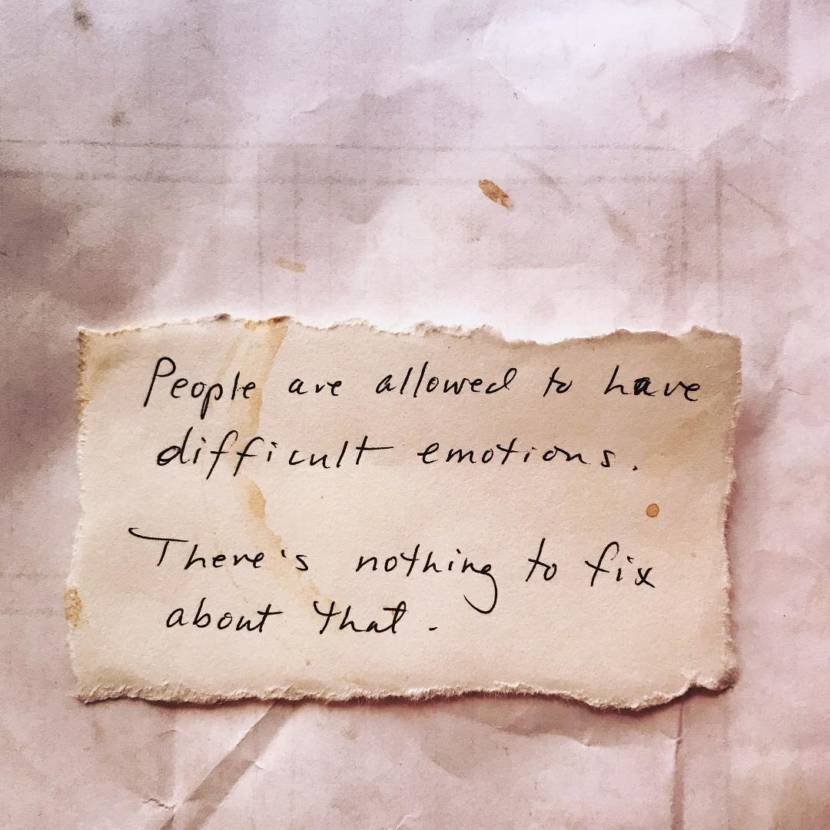 People are allowed to have
difficult emotions.
There's nothing to fix
about that.